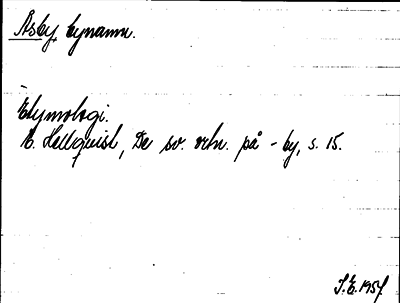 Åsby, bynamn.
Etymologi.
E. Hellquist, De sv. ortn. på -by, s. 15.
S.E. 1957